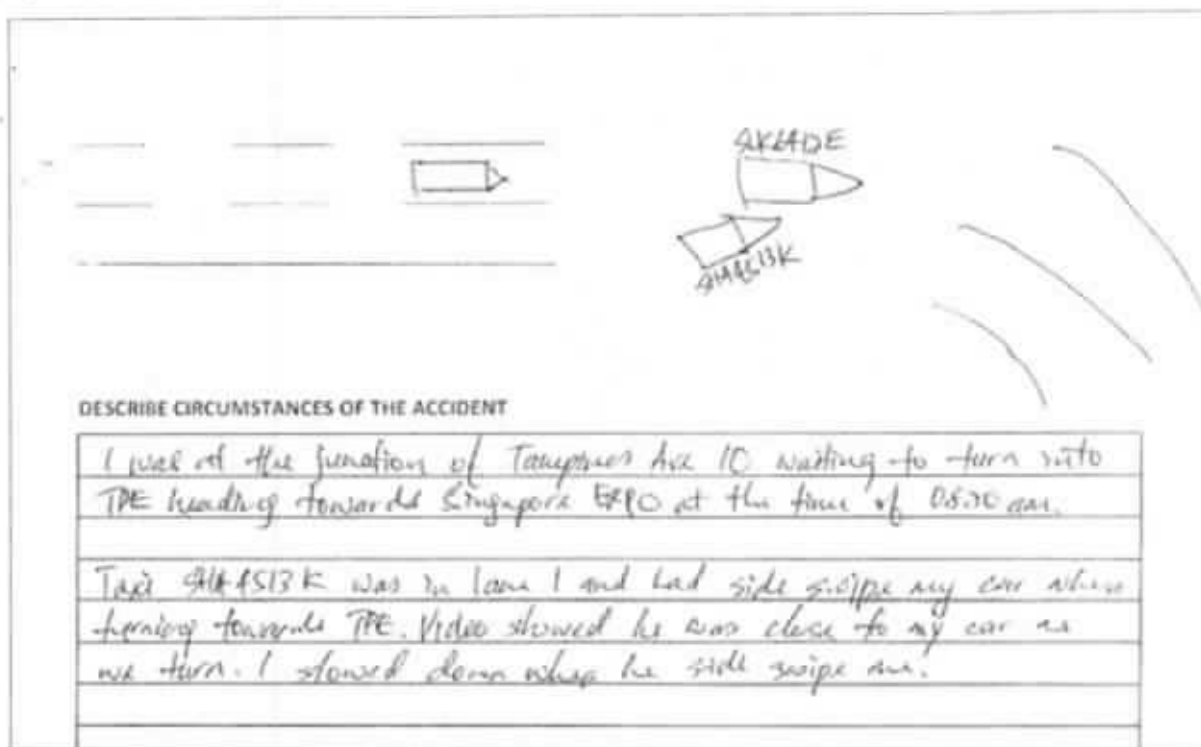 SHA4513K
DESCRIBE CIRCUMSTANCES OF THE ACCIDENT
I was at the junction of Tampines Ave 10 waiting to turn into
TPE heading towards Singapore EXPO at the time of am.
Taxi SHA4513K was in lane 1 and had side swipe my car when
turning towards TPE. Video showed he was close to my car as
we turn. I slowed down when he side swipe me.